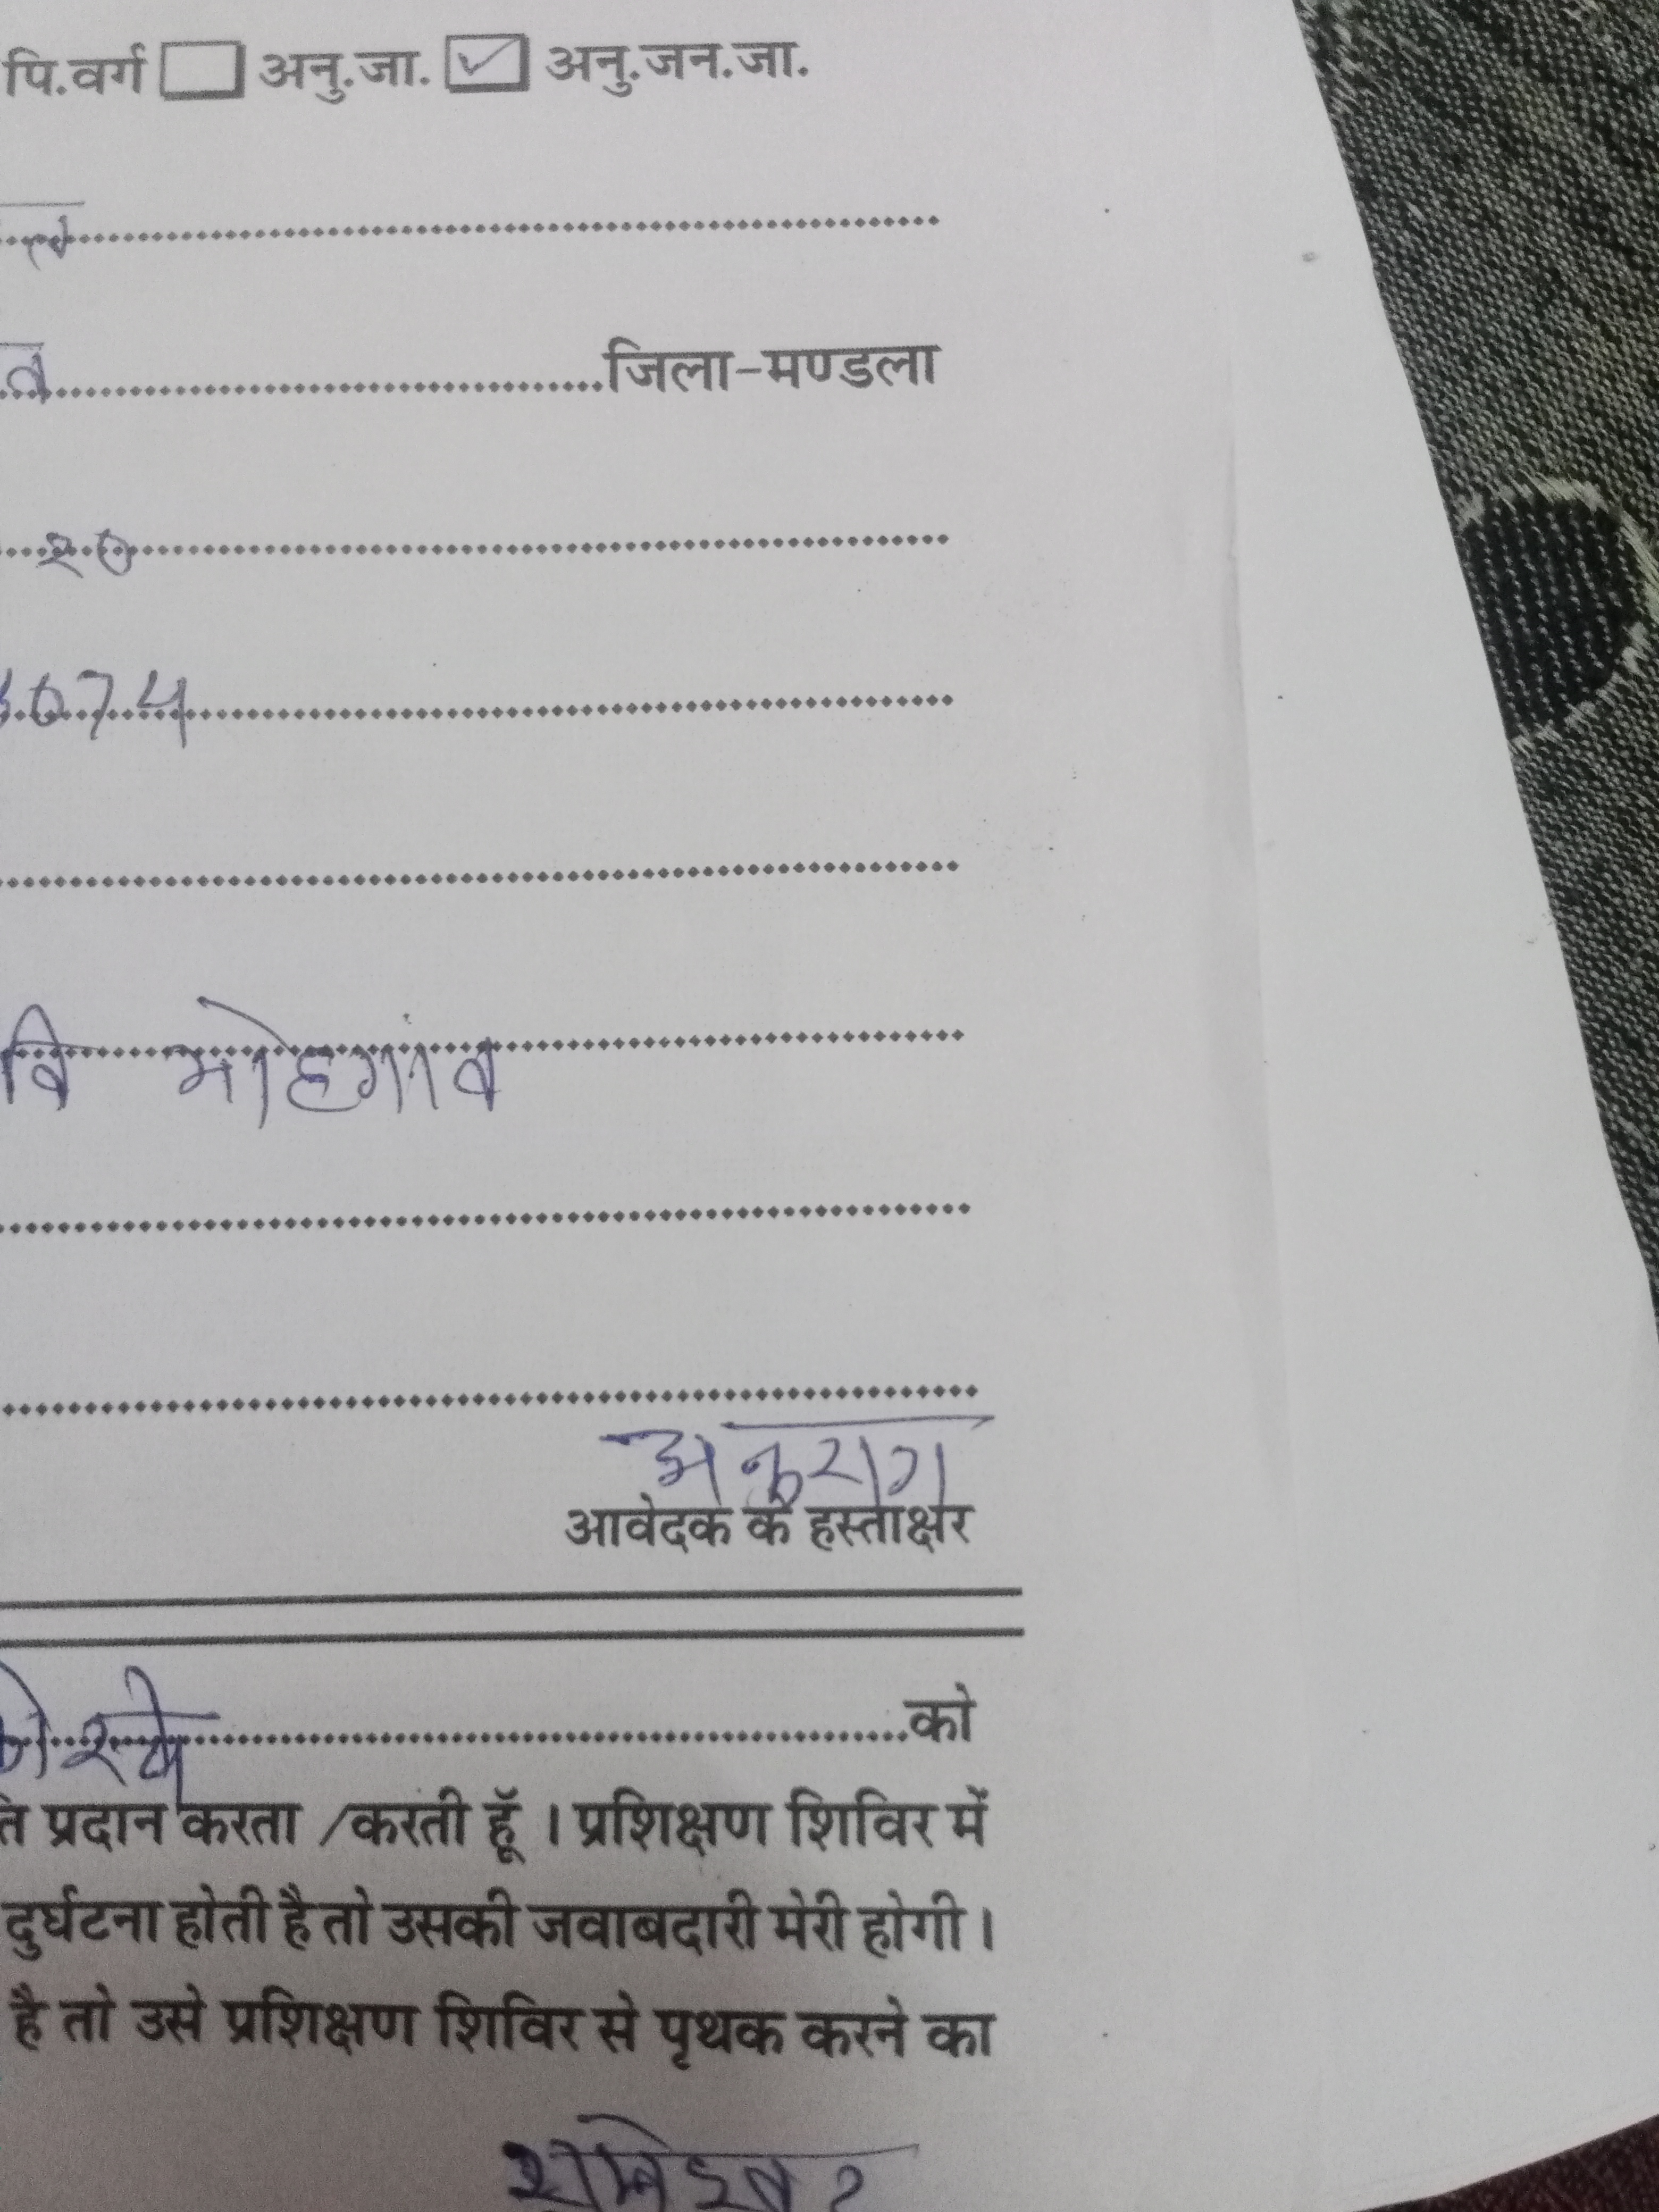 पि.वर्ग अनु.जा. अनु.जन.जा.
जिला-मण्डला
20
074
वि मोहगांव
अनुराग
आवेदक के हस्ताक्षर
को
ति प्रदान करता /करती हूॅ । प्रशिक्षण शिविर में
दुर्घटना होती है तो उसकी जवाबदारी मेरी होगी।
है तो उसे प्रशिक्षण शिविर से पृथक करने का